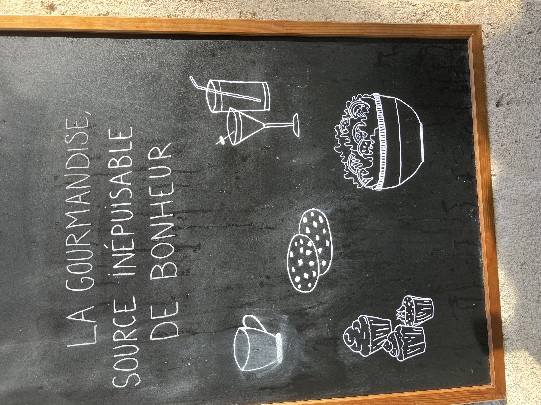 LA GOURMANDISE,
SOURCE INÉPUISABLE
DE BONHEUR